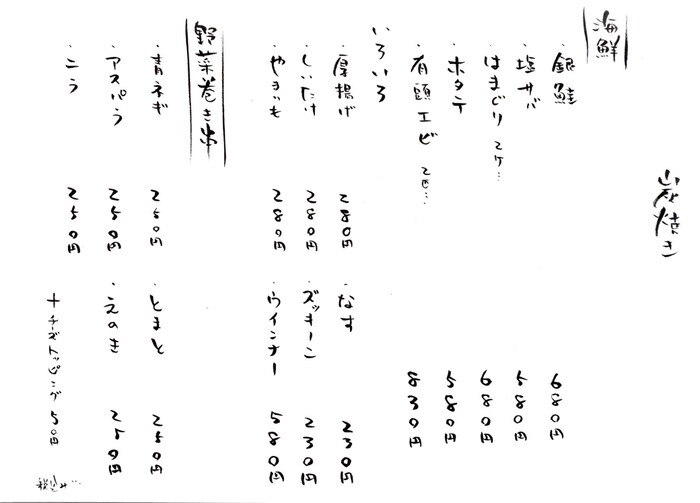 炭焼き
海鮮
・銀鮭 680円
・塩サバ 580円
・はまぐり 2ケ… 680円
・ホタテ 580円
・有頭エビ 2匹… 830円
いろいろ
・厚揚げ 280円
・なす 230円
・しいたけ 280円
・ズッキーニ 230円
・やまいも 280円
・ウインナー 580円
野菜巻き串
・青ネギ 250円
・とまと 250円
・アスパラ 250円
・えのき 250円
・ニラ 250円
＋チーズトッピング 50円
税込み…